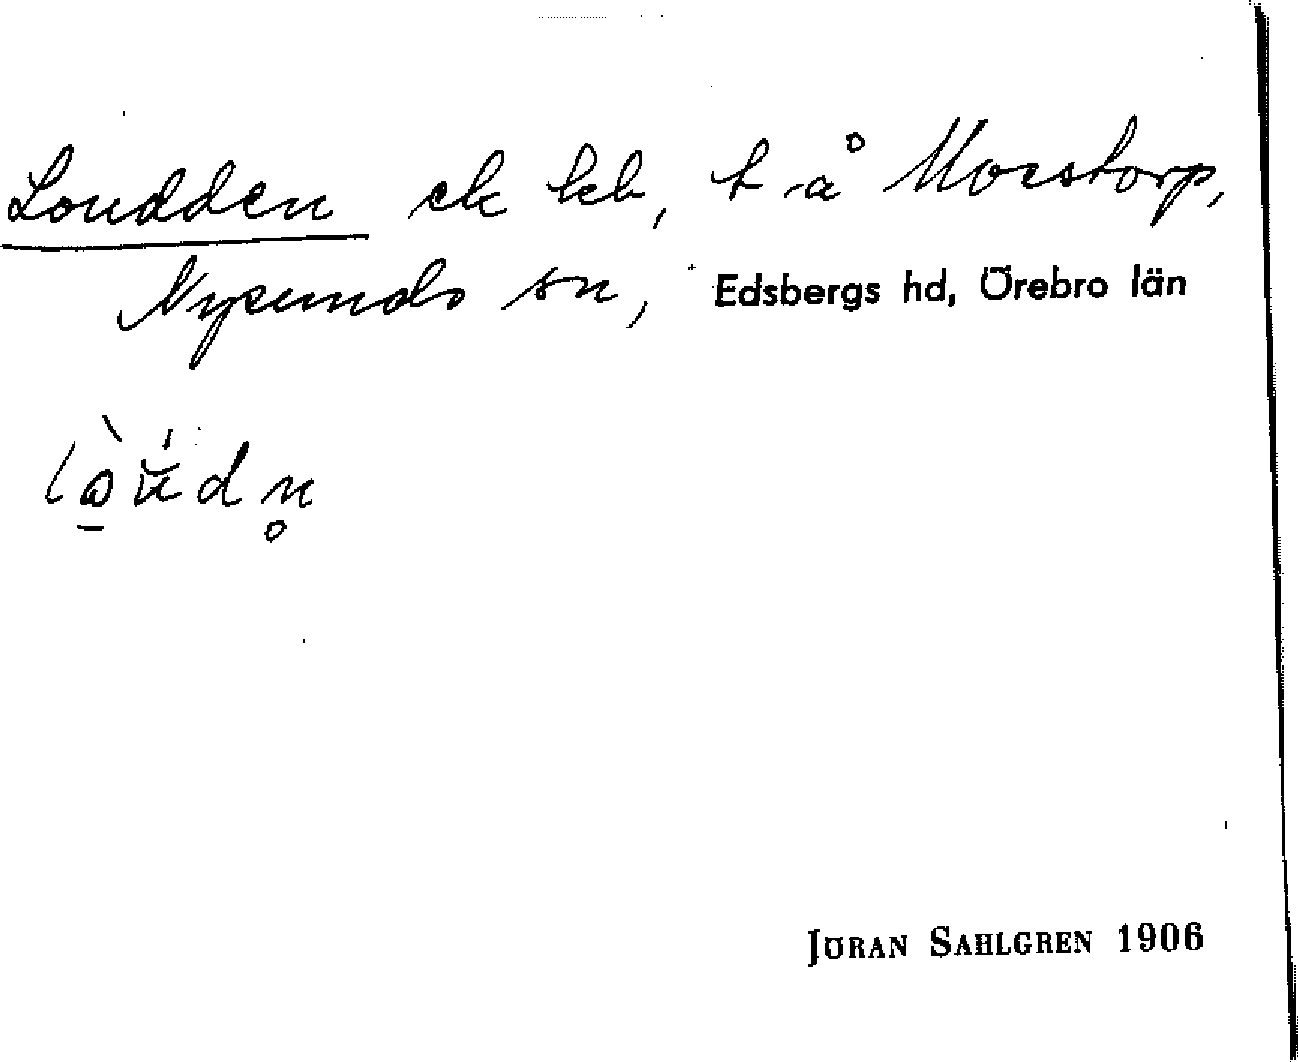 Loudden ek lkb, t å Mosstorp,
Nysunds sn, Edsbergs hd, Örebro län
JÖRAN SAHLGREN 1906